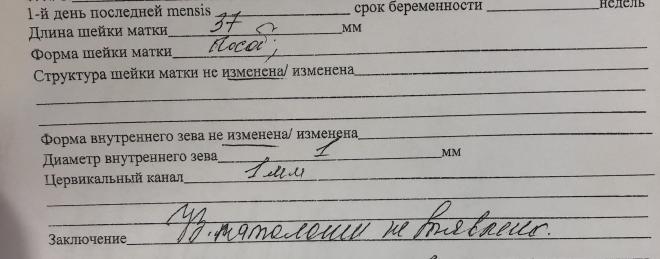 1-й день последней mensis срок беременности недель
Длина шейки матки 37 мм
Форма шейки матки
Структура шейки матки не изменена/ изменена
Форма внутреннего зева не изменена/ изменена
Диаметр внутреннего зева 1 мм
Цервикальный канал 1 мм
Заключение патологии не выявлено.